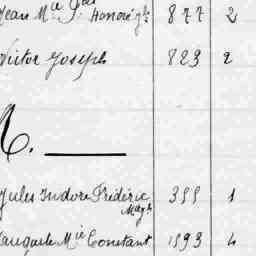 Jean Mie Honoré 877 2
Victor Joseph 823 2
Jules Isidore Frédéric 355 1
Auguste Mie Constant 1593 4